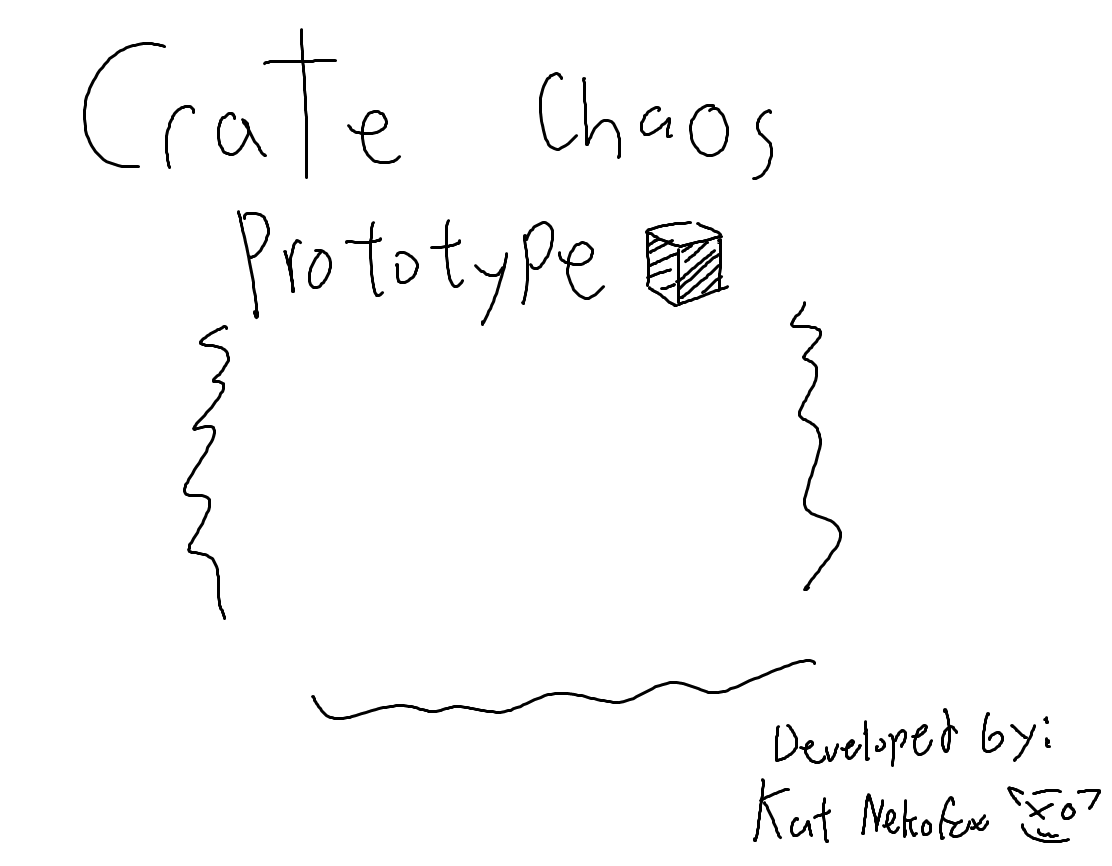 Crate Chaos
Prototype
Developed by:
Kat Nekofox